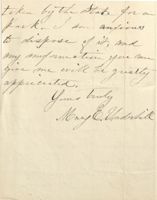 taken by the State for a
park. I am anxious
to dispose of it, and
any information you can
give me will be greatly
appreciated.
Yours truly
Mary E. Underhill